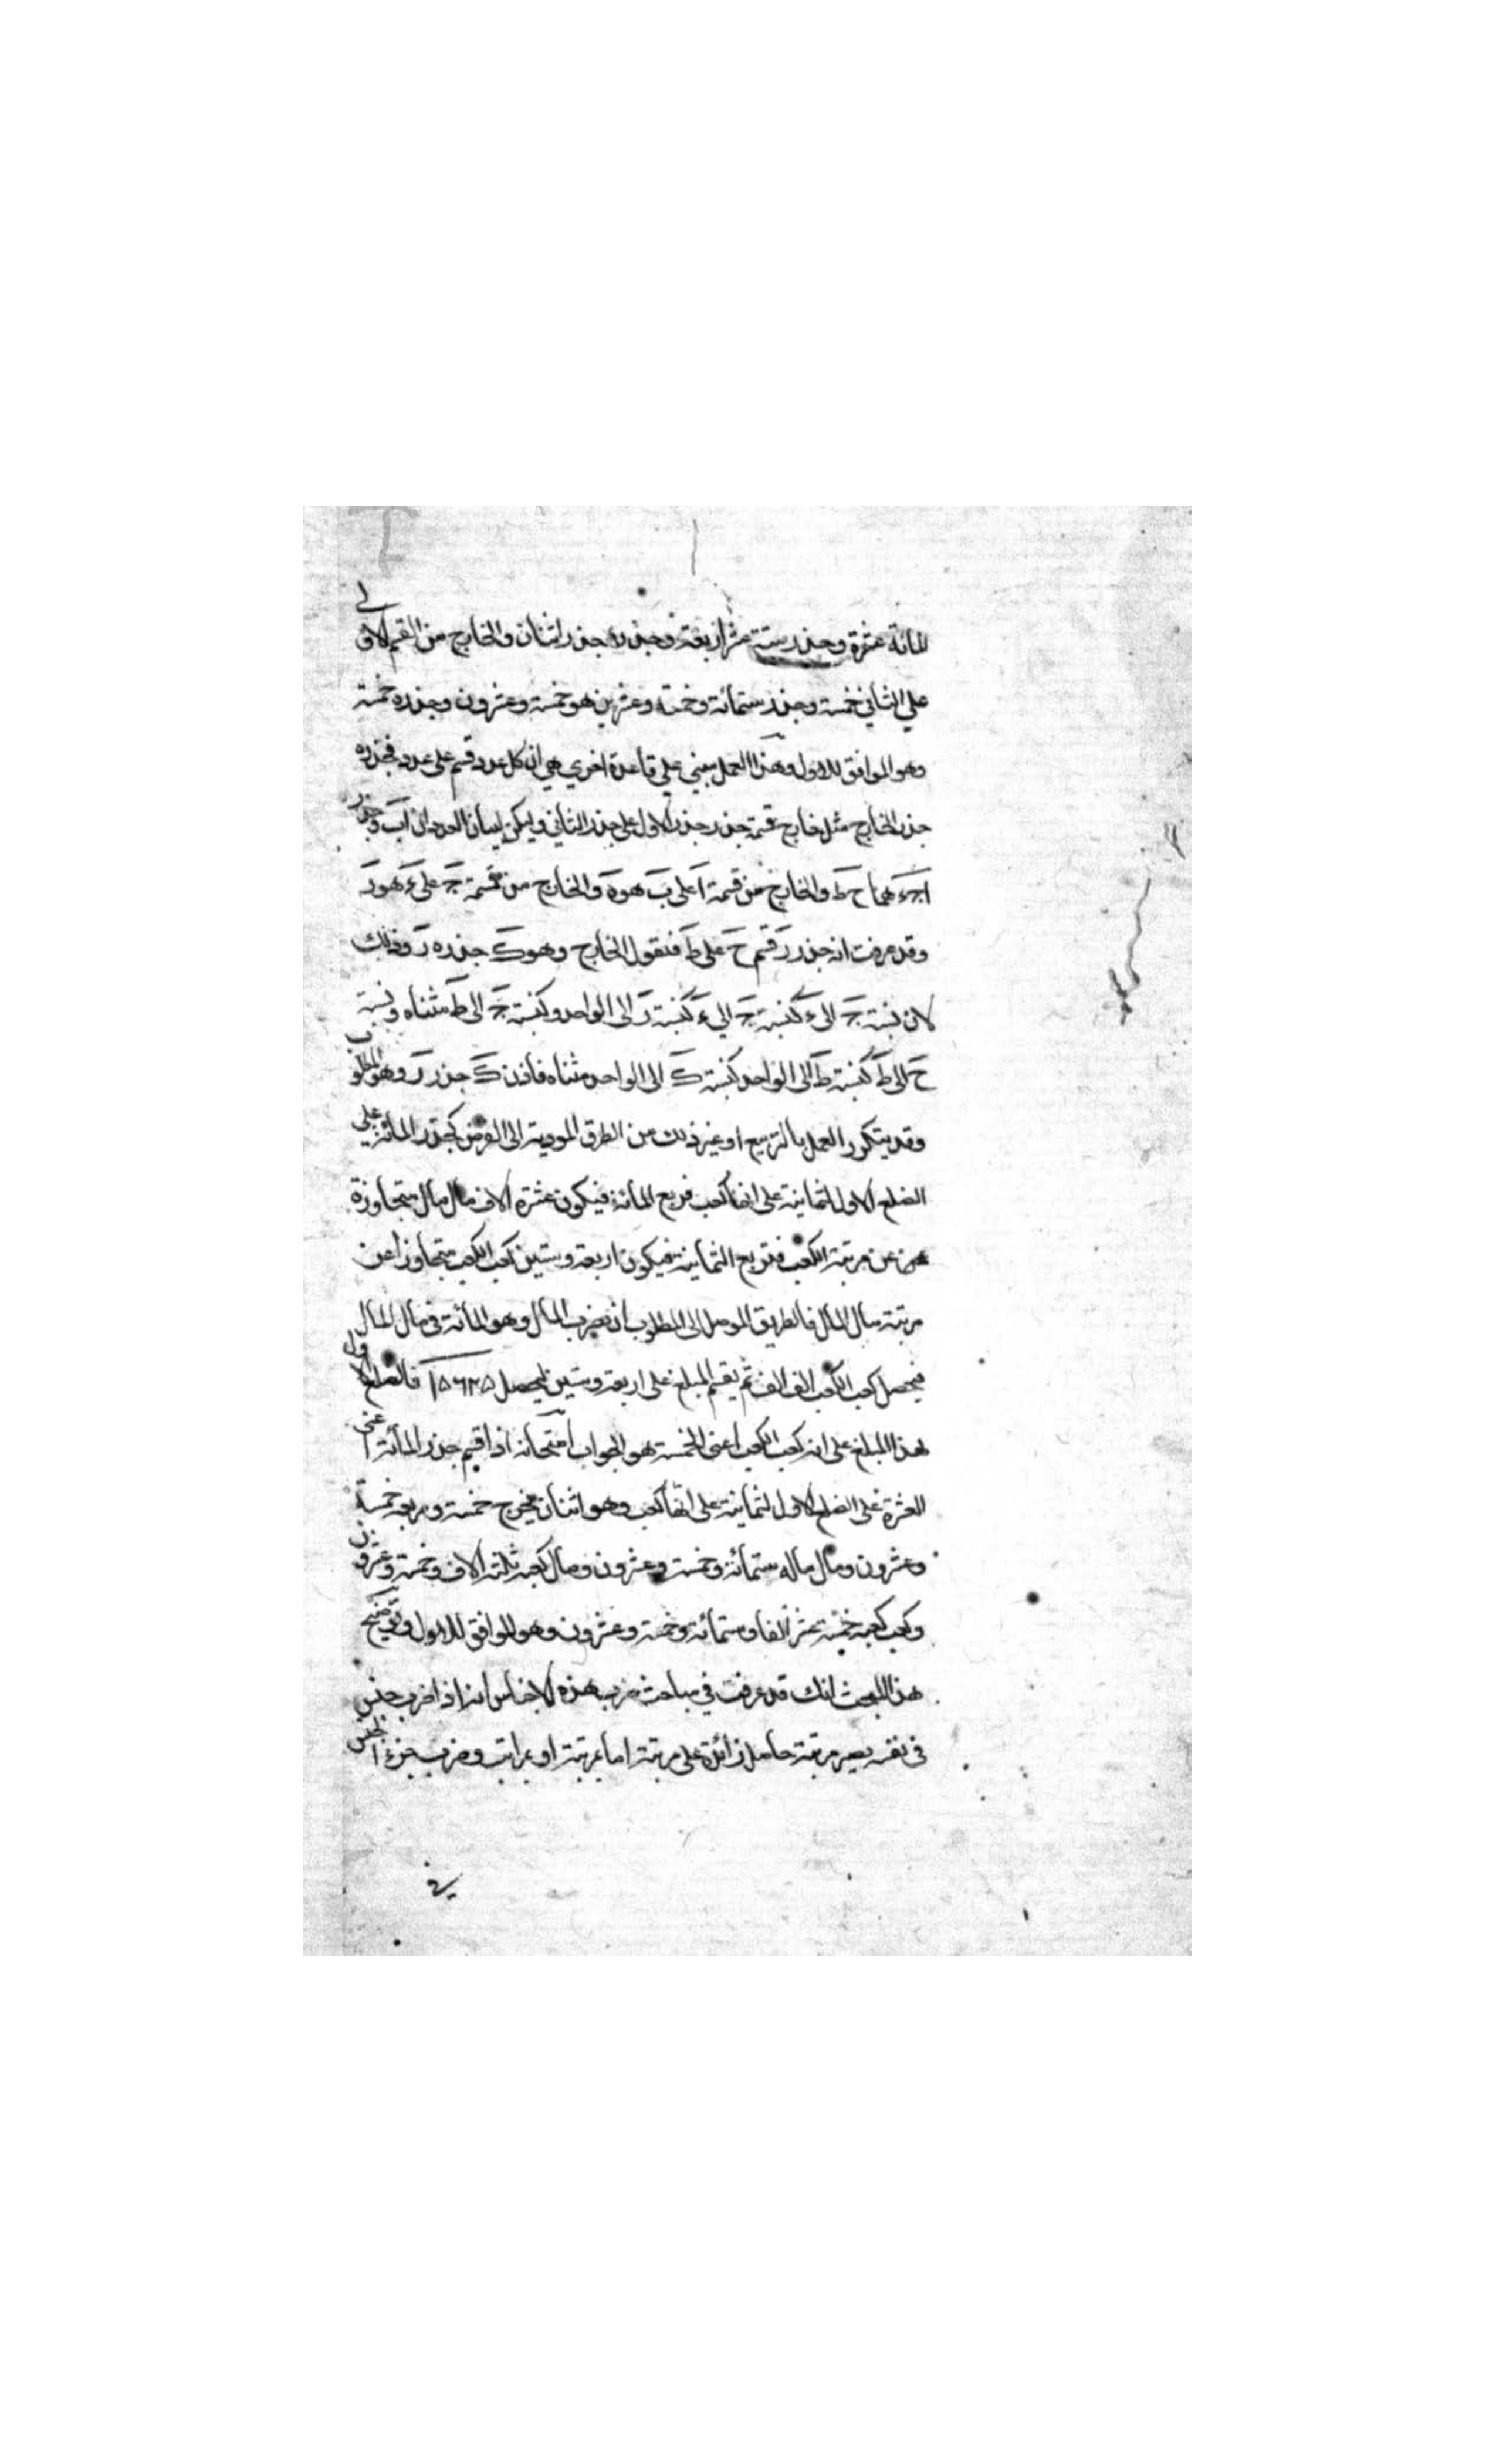 المائة عشرة وجذر ستة عشر اربعة وجذر جذره اثنان والخارج من القسم الاولي
علي الثاني خمسة وجذر ستمائة وخمسة وعشرين هو خمسة وعشرون وجذره خمسة
وهو الموافق للاول وهذا العمل مبني علي قاعدة اخري هي ان كل عدد قسم على عدد فجذر
جذر الخارج مثل خارج قسمة جذر جذر الاول على جذر الثاني وليكن لبيان العددان اَ بَ وجذر
هما ح ط والخارج من قسمة اَ على بَ هو هَ والخارج من قسمة جَ على ءَ هو رَ
وقد عرفت انه جذر رَ قسم حَ على طَ فنقول الخارج وهو كَ جذره رَ وذلك
لان نسبة جَ الى ءَ كنسبة جَ الي ءَ كنسبة رَ الى الواحد وكنسبة جَ الى طَ مثناه ونسبة
حَ الى طَ كنسبة طَ الى الواحد كنسبة كَ الى الواحد مثناه فاذن كَ جذر رَ وهو المطلوب
وقد يتكرر العمل بالتربيع او غير ذلك من الطرق الموديه الى الغرض كجذر المائة علي
الضلع الاول لثمانية على انها كعب فربع المائة فيكون عشرة الاف مال مال متجاوزة
عن مرتبة الكعب فنربع الثمانية فيكون اربعة وستين كعب الكعب متجاوزا عن
مرتبة مال المال فالطريق الموصل الى المطلوب ان نضرب المال وهو المائة في مال المال
فيحصل كعب الكعب الف الف ثم يقسم المبلغ على اربعة وستين ليحصل ١٥٦٢٥ فالضلع الاول
لهذا المبلغ على انه كعب الكعب اعنى الخمسة هو الجواب امتحانه اذا قسم جذر المائة اعنى
العشرة على الضلع الاول لثمانية على انها كعب وهو اثنان يخرج خمسة ومربعه خمسة
وعشرون ومال ماله ستمائة وخمسة وعشرون ومال كعبه ثلثة الاف وخمسة وعشرون
وكعب كعبه خمسة عشر الفا وستمائة وخمسة وعشرون وهو الموافق للاول وتوضيح
هذا البحث انك قد عرفت في مباحث ضرب هذه الاجناس انه اذا ضرب جنس
في نفسه يصير مرتبة حاصل زائدة على مرتبة اما بمرتبة او بمراتب وضرب جزء الجنس
في